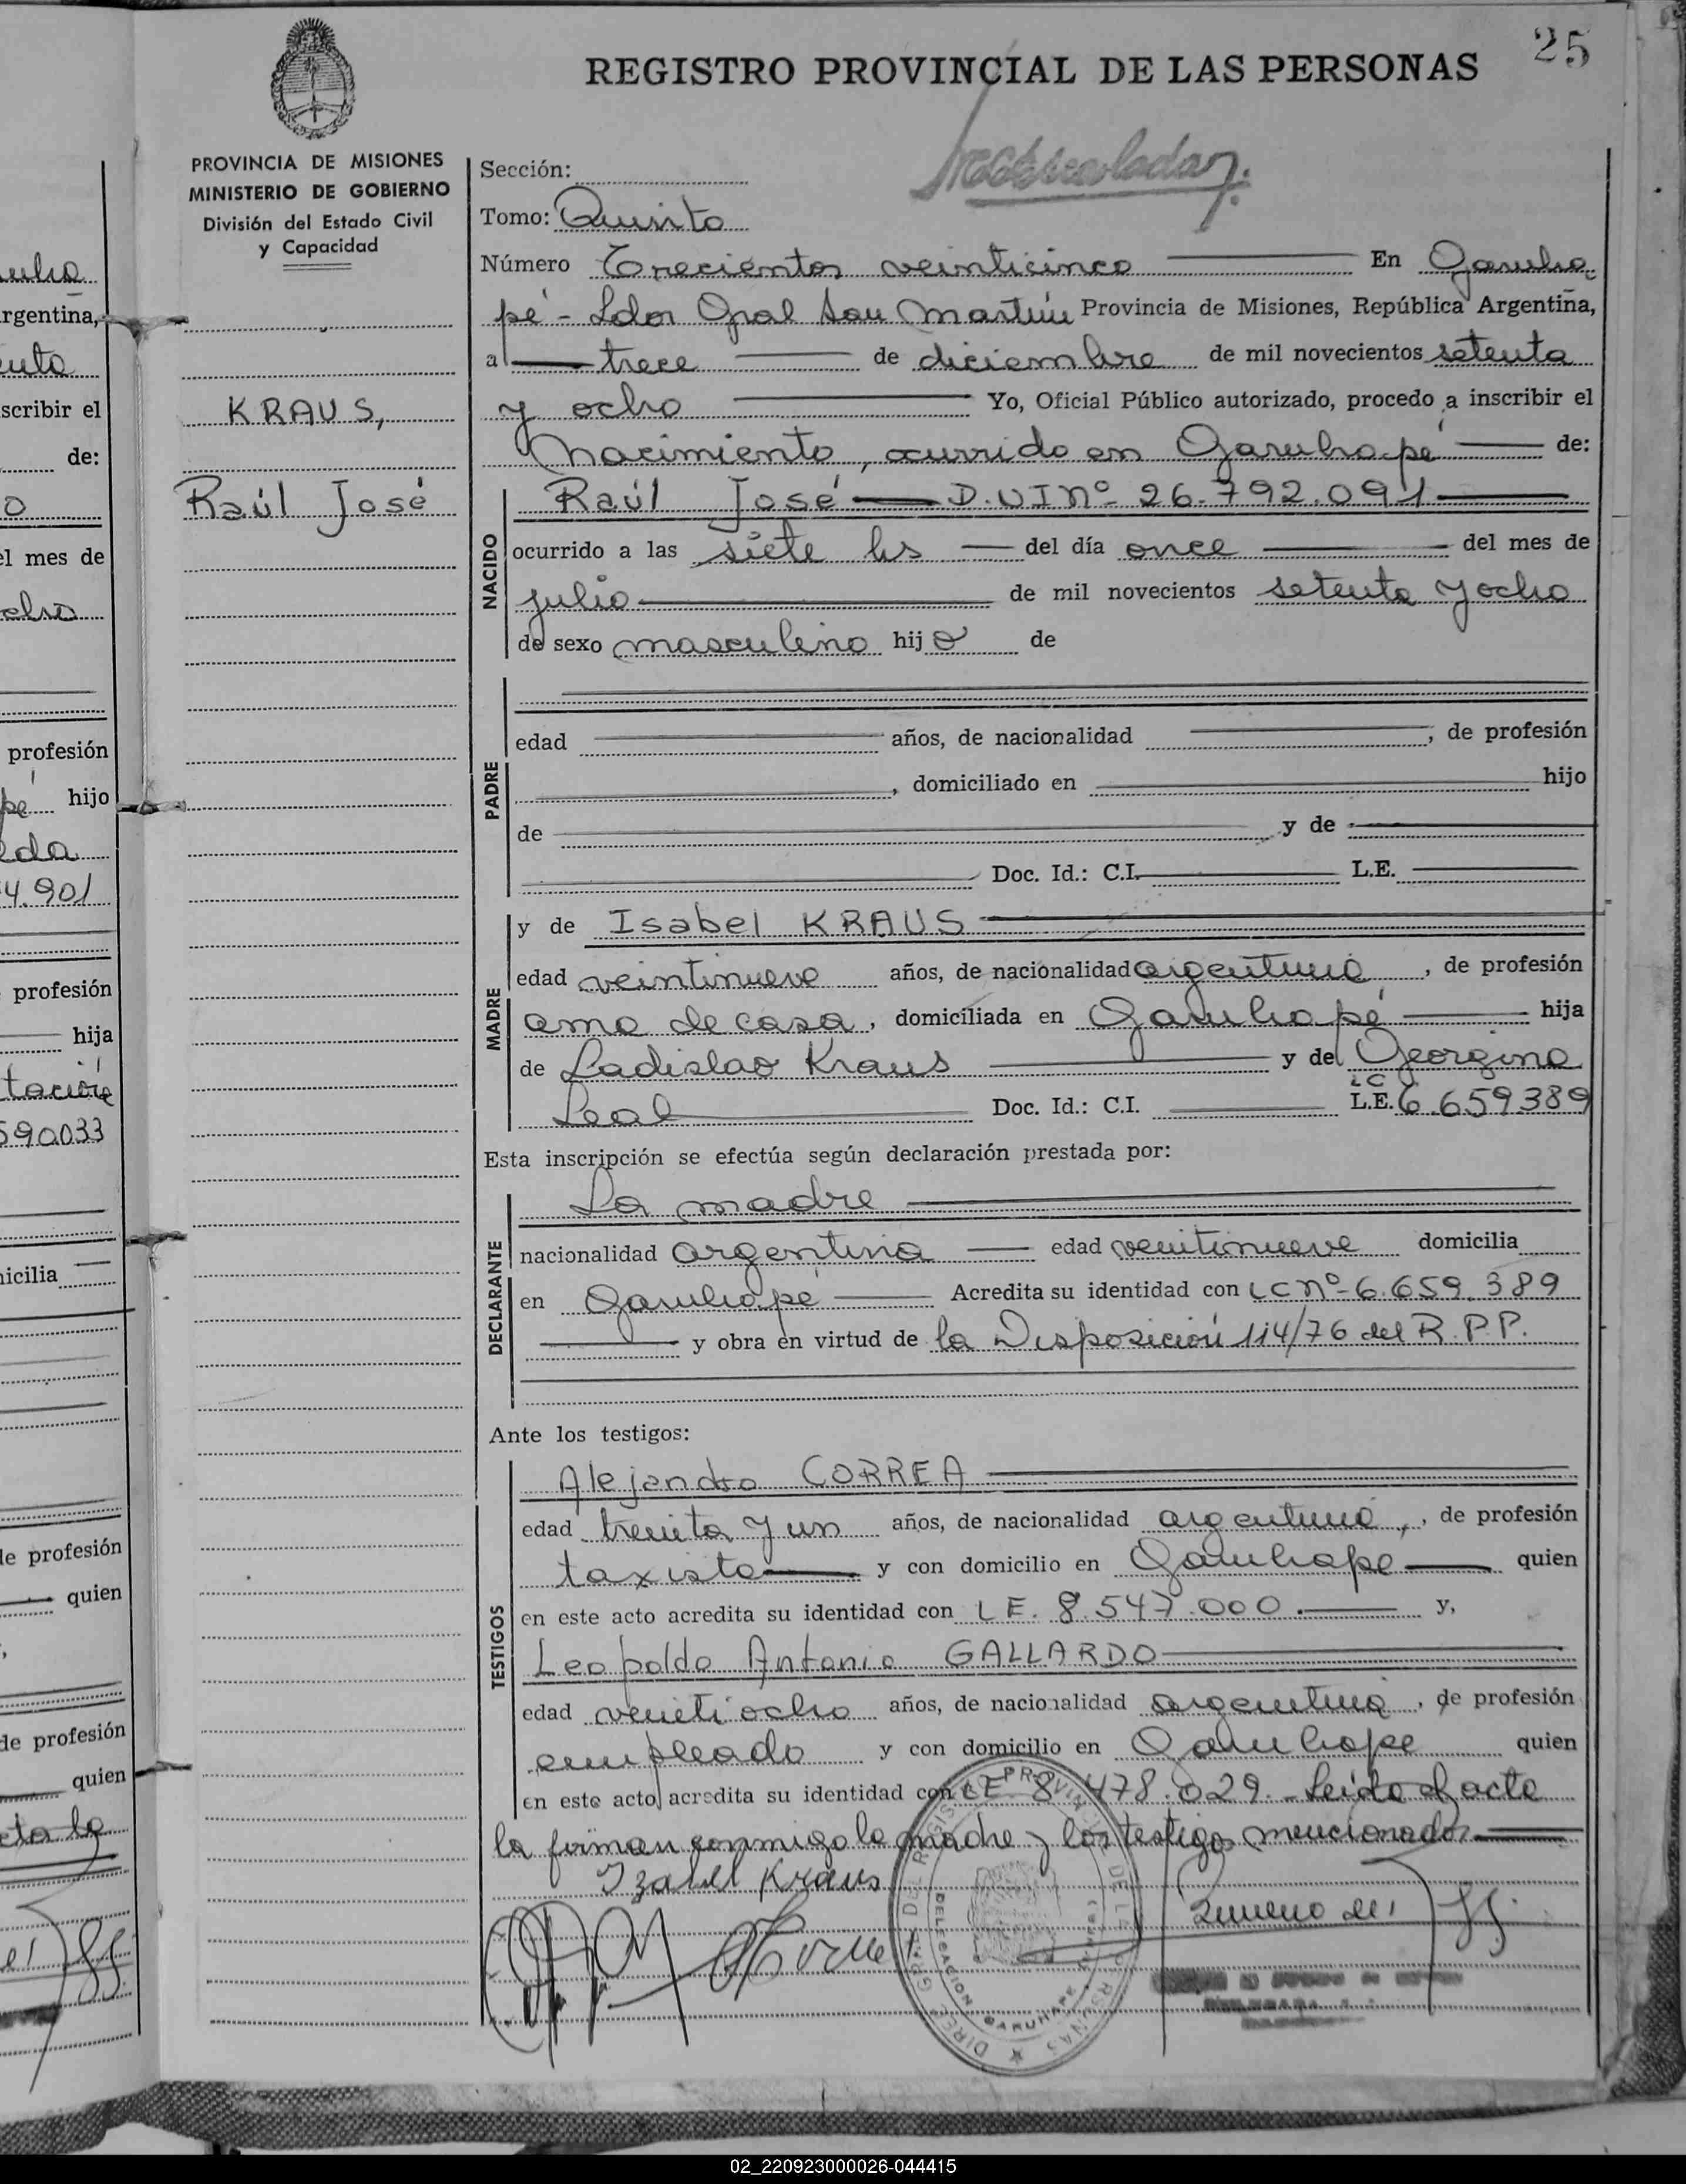 25
REGISTRO PROVINCIAL DE LAS PERSONAS
PROVINCIA DE MISIONES
MINISTERIO DE GOBIERNO
División del Estado Civil
y Capacidad
KRAUS,
Raúl José
Sección:
Tomo: Quinto
Número Trecientos veinticinco En Garuha
pé - Ldor Gral San Martín Provincia de Misiones, República Argentina,
a trece de diciembre de mil novecientos setenta
y ocho Yo, Oficial Público autorizado, procedo a inscribir el
Nacimiento, ocurrido en Garuhapé de:
NACIDO
Raúl José D.N.I Nº 26.792.091
ocurrido a las siete hs del día once del mes de
julio de mil novecientos setenta y ocho
de sexo masculino hijo de
PADRE
edad años, de nacionalidad , de profesión
, domiciliado en hijo
de y de
Doc. Id.: C.I. L.E.
MADRE
y de Isabel KRAUS
edad veintinueve años, de nacionalidad argentina, de profesión
ama de casa, domiciliada en Garuhapé hija
de Ladislao Kraus y de Georgina
Leal Doc. Id.: C.I. LC L.E. 6.659389
Esta inscripción se efectúa según declaración prestada por:
DECLARANTE
La madre
nacionalidad argentina edad veintinueve domicilia
en Garuhapé Acredita su identidad con LC Nº 6.659.389
y obra en virtud de la Disposición 114/76 del R.P.P.
Ante los testigos:
TESTIGOS
Alejandro CORREA
edad treinta y un años, de nacionalidad argentina, de profesión
taxista y con domicilio en Garuhape quien
en este acto acredita su identidad con LE. 8.547.000. y,
Leopoldo Antonio GALLARDO
edad veintiocho años, de nacionalidad argentina, de profesión
empleado y con domicilio en Garuhape quien
en este acto acredita su identidad con LE 8.478.029.- Leida el acta
la firman conmigo la madre y los testigos mencionados
Izabel Kraus
DELEGACION GARUHAPE
02_220923000026-044415